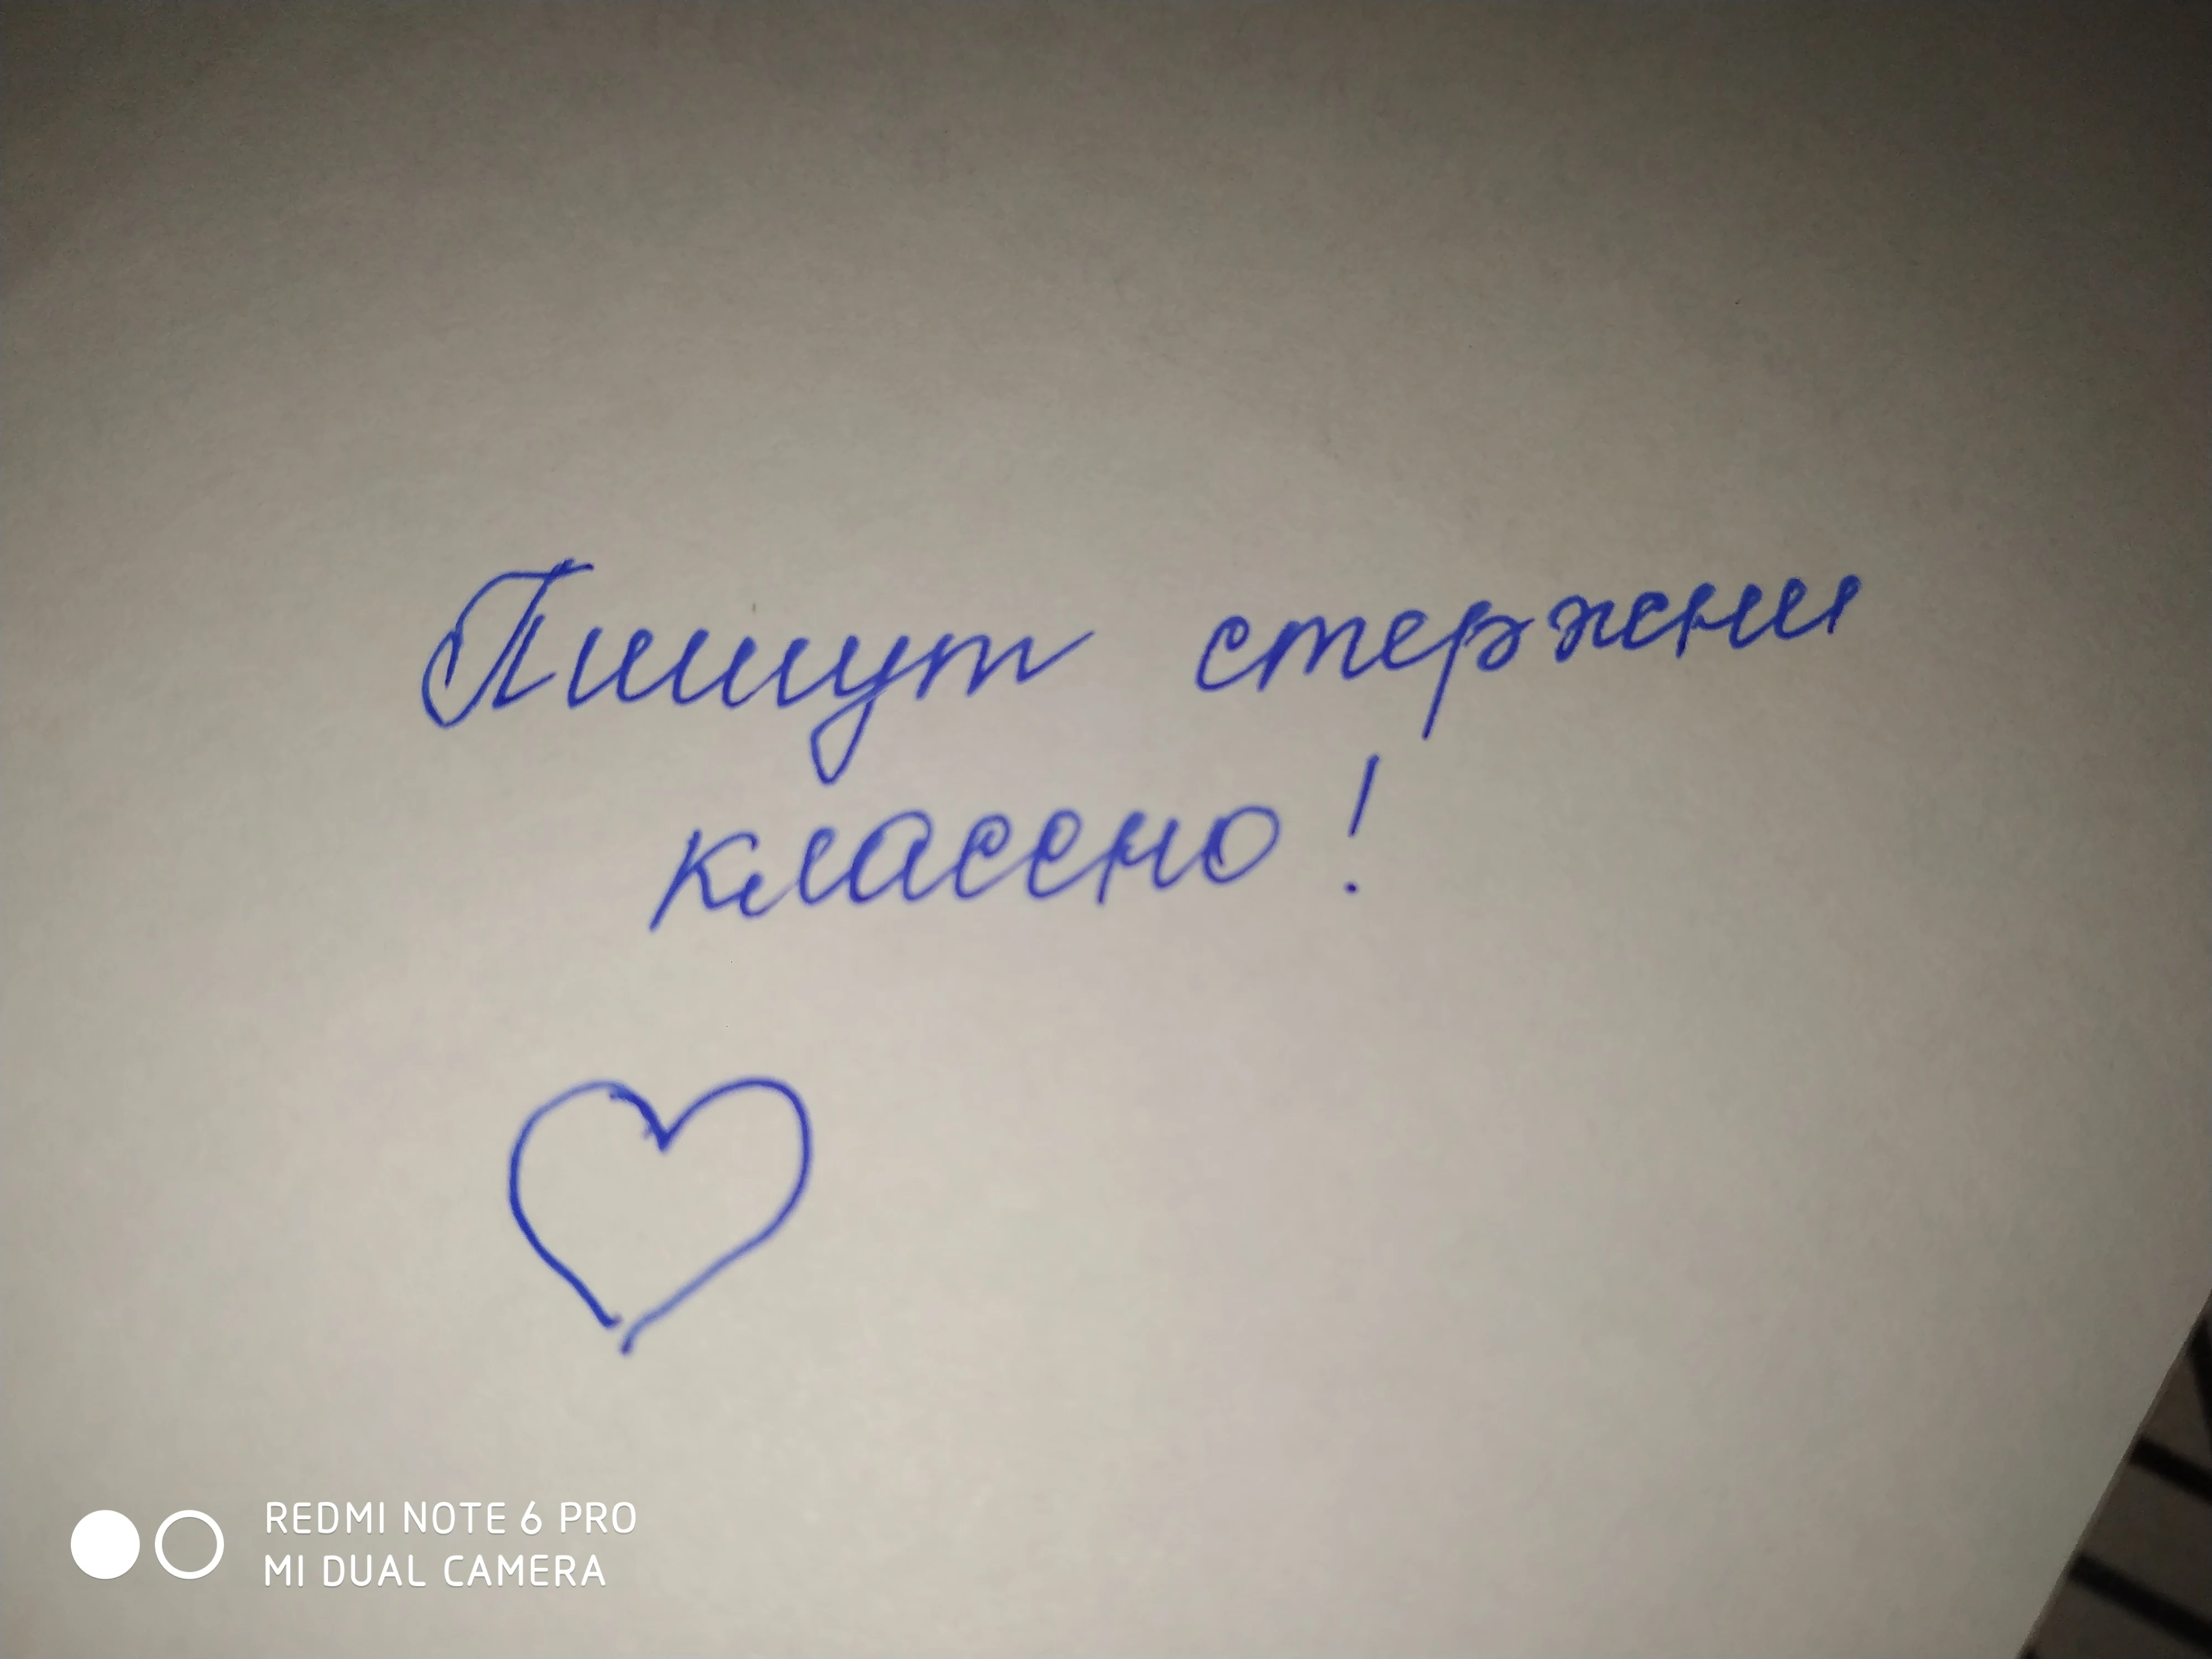 Пишут стержни
классно!
REDMI NOTE 6 PRO
MI DUAL CAMERA